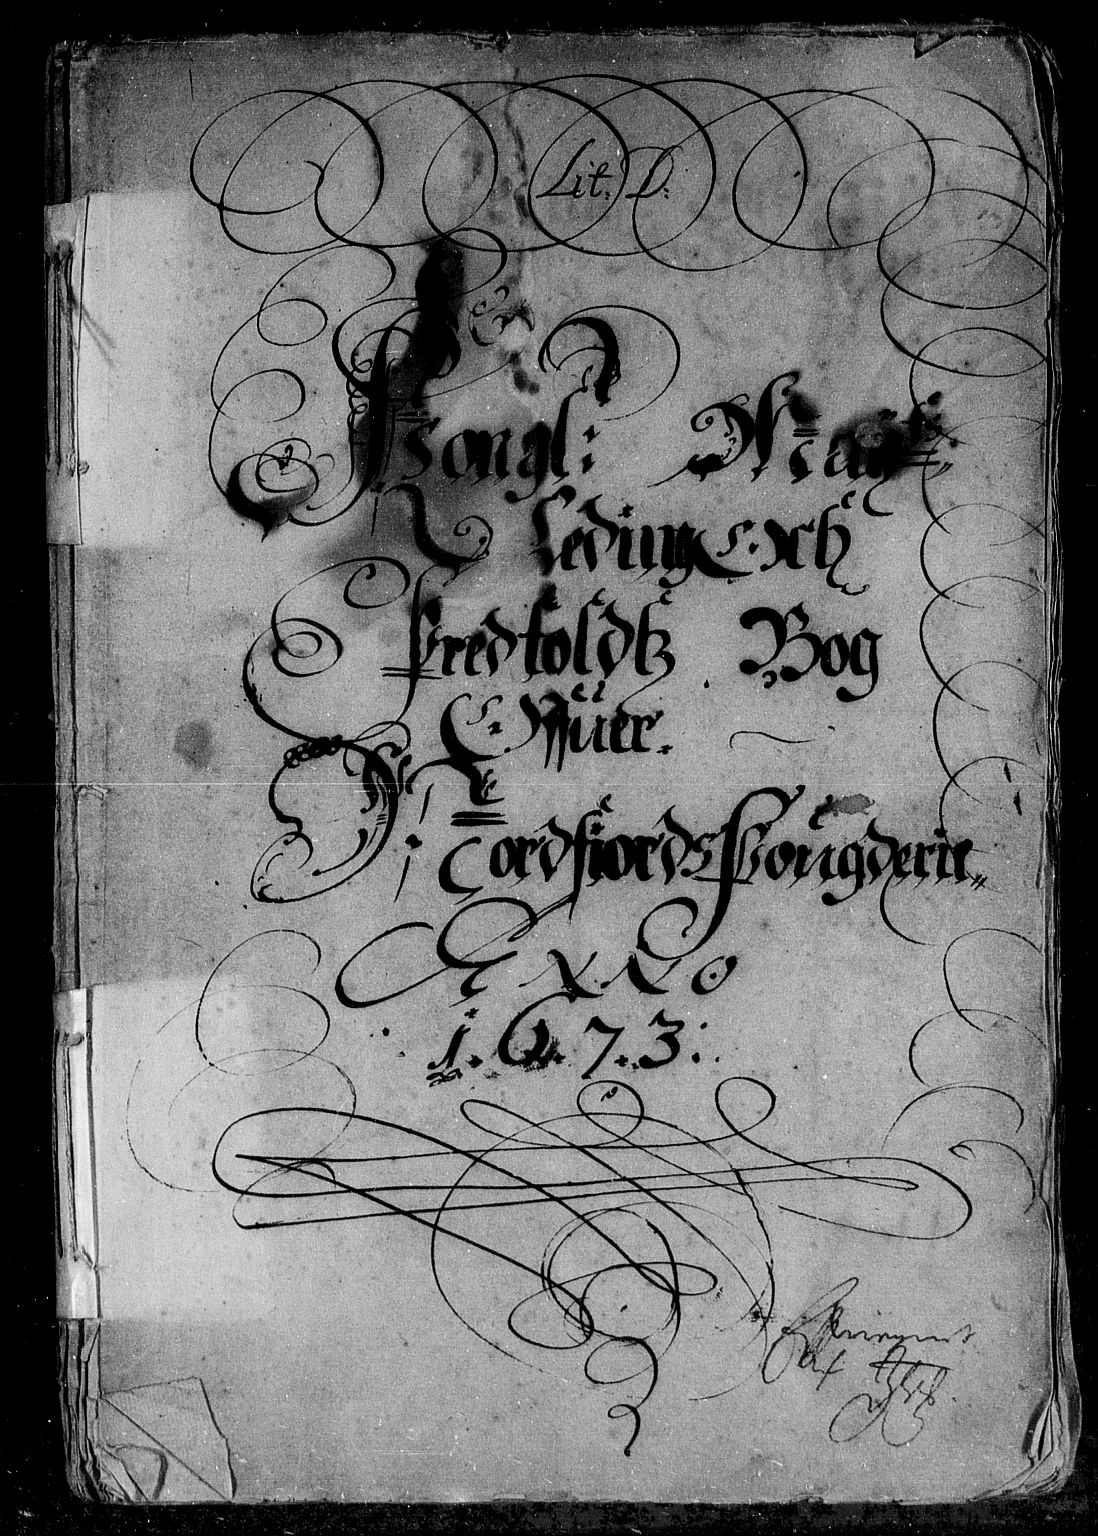 Lit. D:
Kongl: Maytz.
Ledings Och
Fredtoldtz Bog
Offüer.
I: Nordfiords Fougderie,,
Anno
1.6.7.3:.